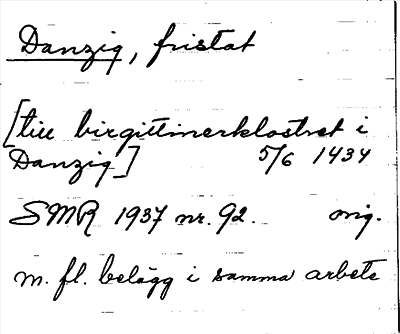 Danzig, fristat
[till birgittinerklostret i
Danzig] 5/6 1434
SMR 1937 nr. 92. orig.
m. fl. belägg i samma arbete